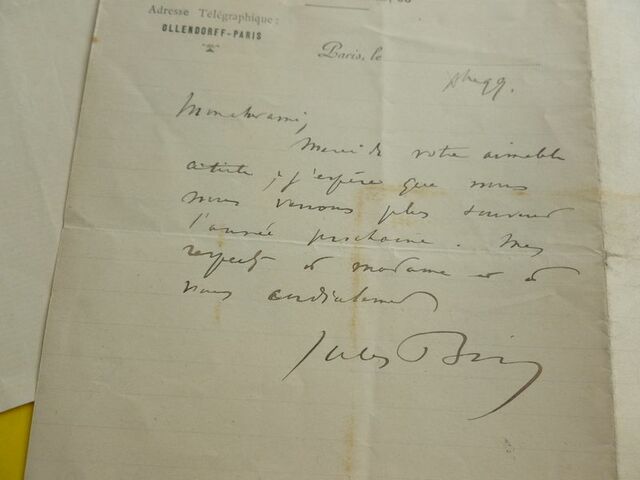 Adresse Télégraphique :
OLLENDORFF-PARIS
Paris, le
Mon cher ami,
Merci de votre aimable
article, j'espère que nous
nous verrons plus souvent
l'année prochaine. Mes
respects à madame et à
vous cordialement
Jules Bois